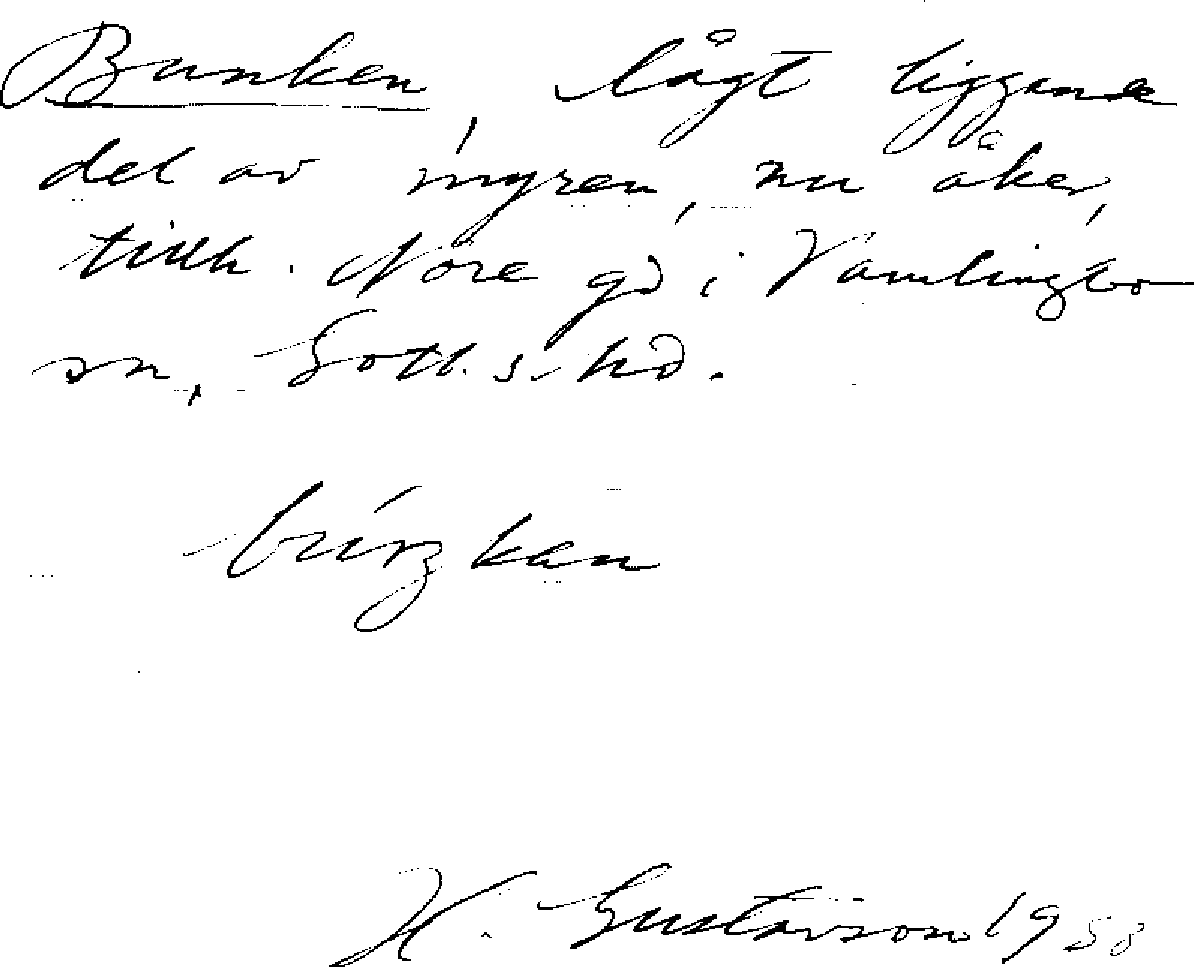 Bunken, lågt liggande
del av myren, nu åker,
tillh. Nore gd i Vamlingbo
sn, Gotl. s. hd.
H. Gustavson 1958